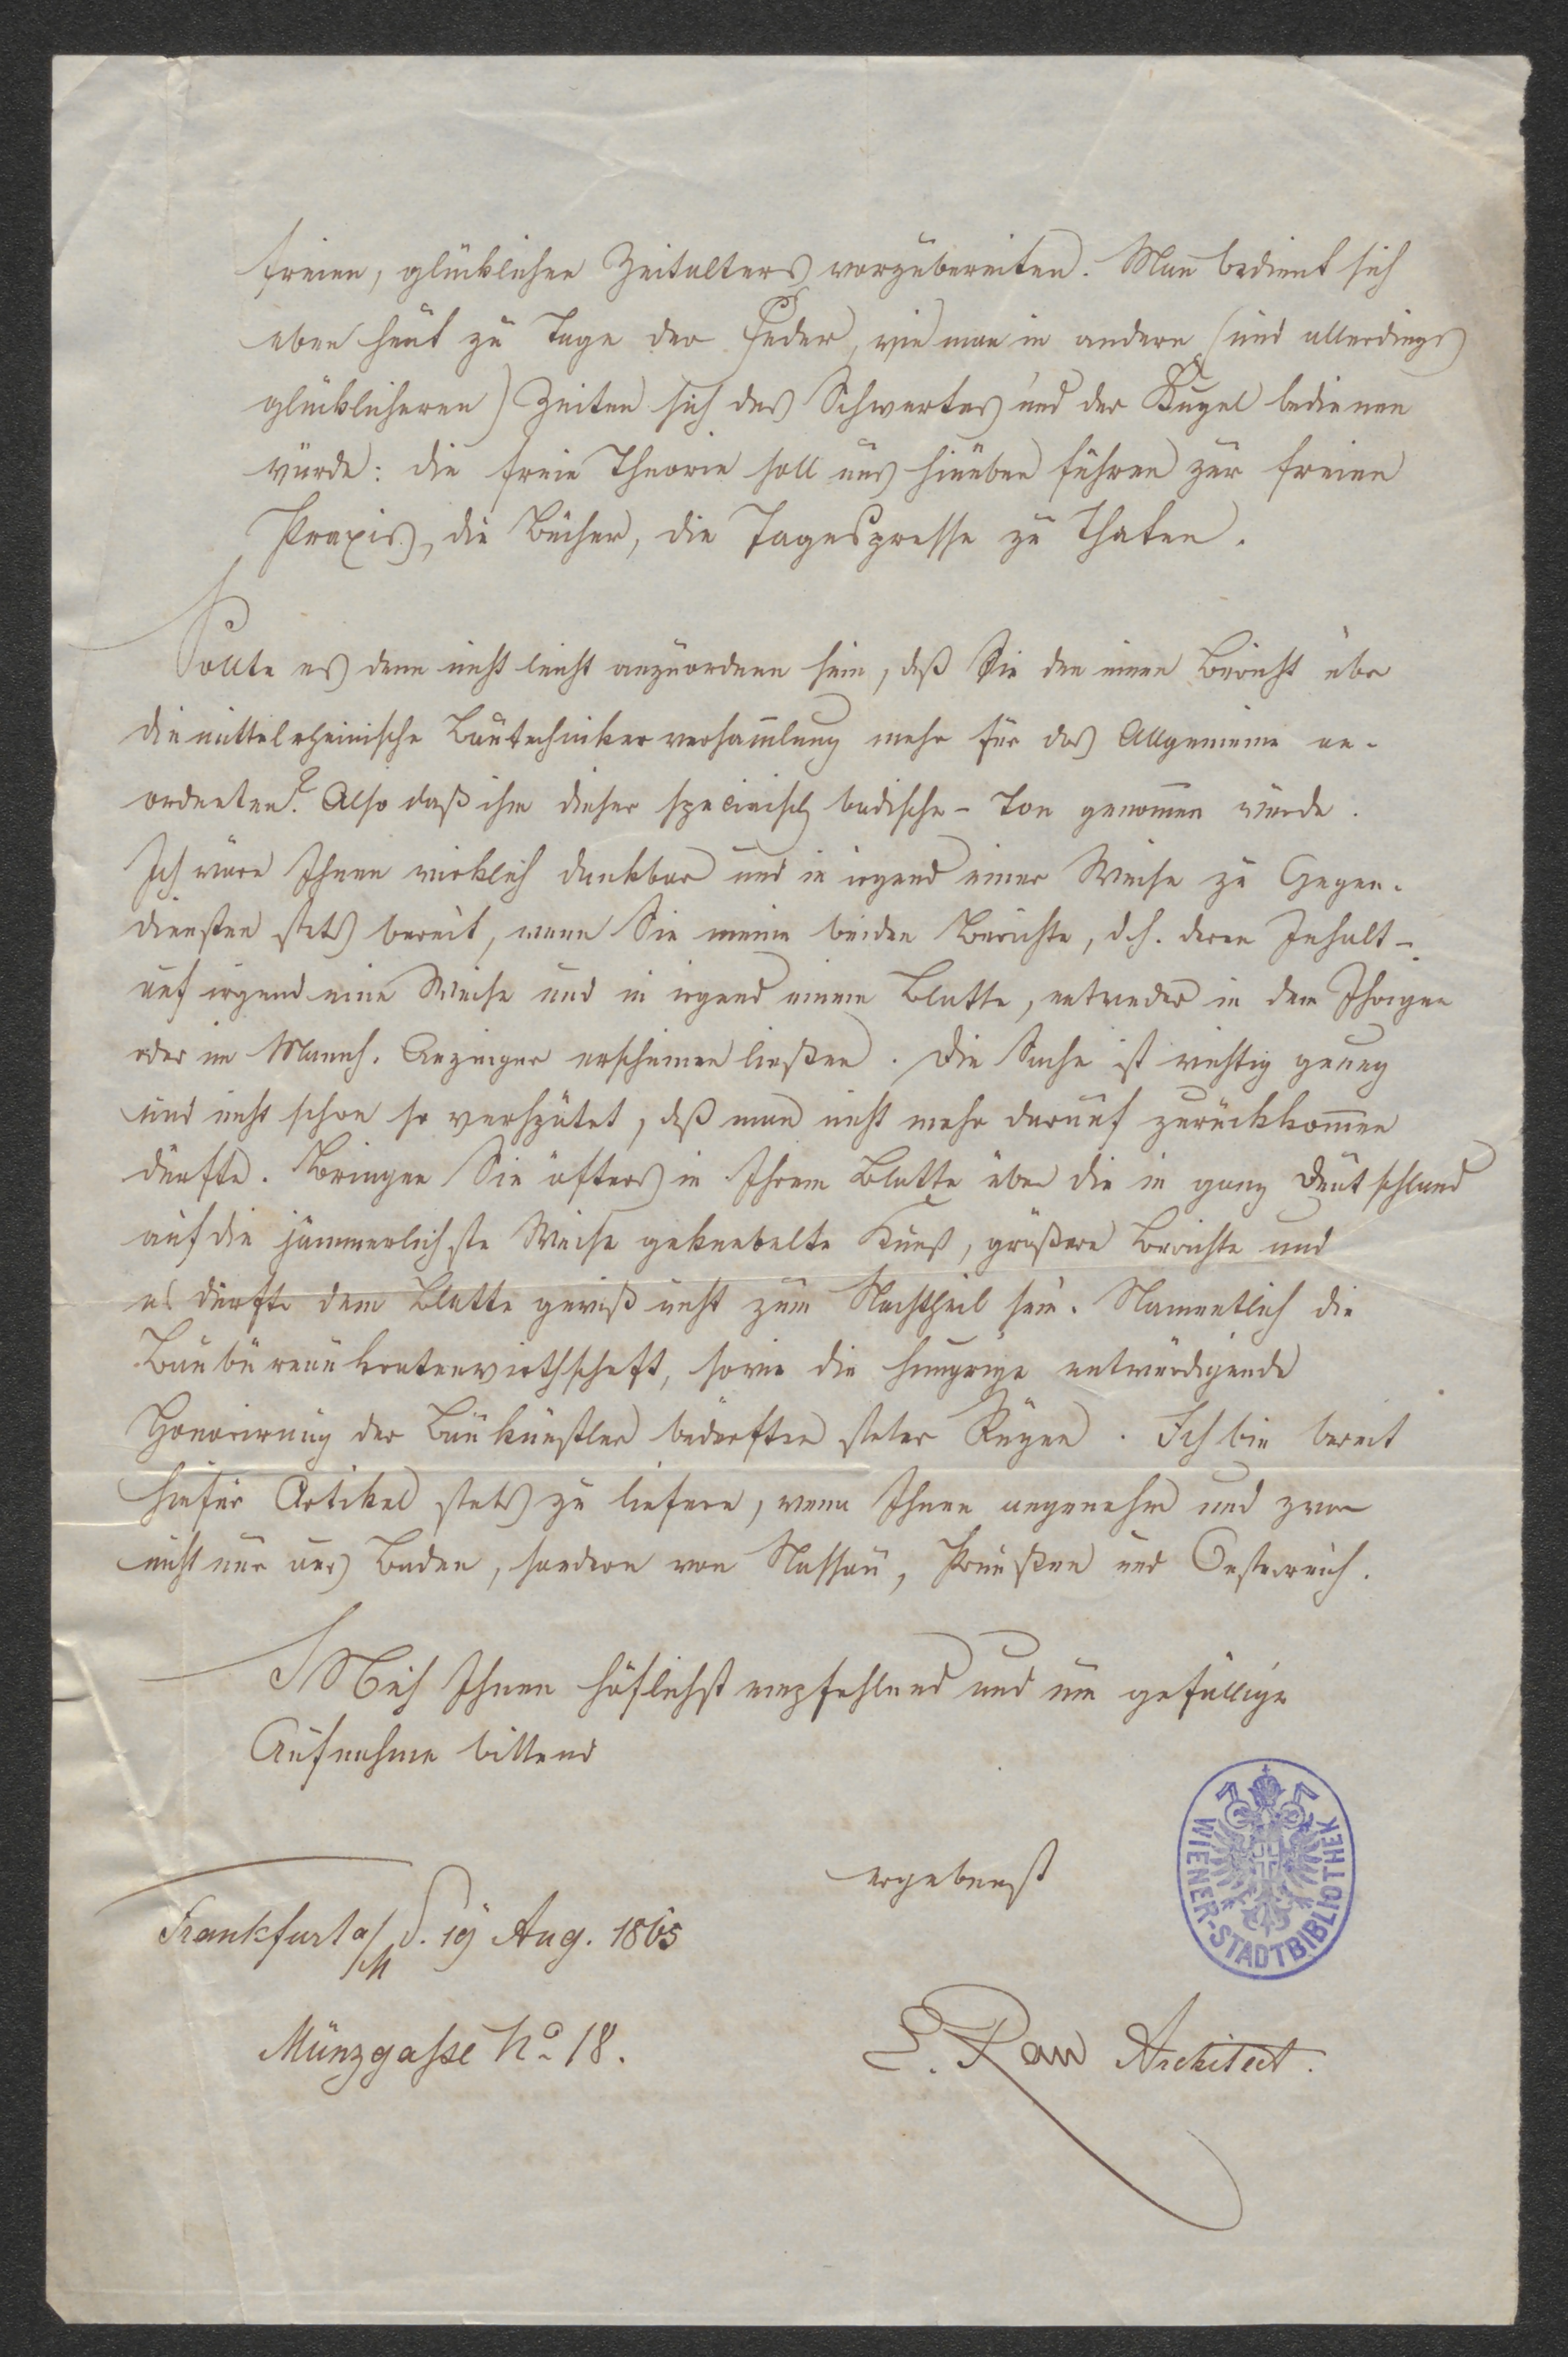 freien, glücklichen Zeitalters vorzubereiten. Man bedient sich
eben heut zu Tage der Feder, wie man in andern (und allerdings
glücklicheren) Zeiten sich des Schwertes und der Kugel bedienen
würde: die freie Theorie soll uns hinüber führen zur freien
Praxis, die Bücher, die Tagespresse zu Thaten.
Sollte es denn nicht leicht anzuordnen sein, daß Sie den einen Bericht über
die mittelrheinische Bautechnikerversam̅lung mehr für das Allgemeine an-
ordneten? Also daß ihm dieser badische - Ton genom̅en würde.
Ich wäre Ihnen wirklich dankbar und in irgend einer Weise zu Gegen-
diensten stets bereit, wenn Sie meine beiden Berichte, d.h. deren Inhalt -
auf irgend eine Weise und in irgend einem Blatte, entweder in dem Ihrigen
oder im Mannh. Anzeiger erscheinen ließen. Die Sache ist wichtig genug
und nicht schon so verspätet, daß man nicht mehr darauf zurückkom̅en
dürfte. Bringen Sie öfters in Ihrem Blatte über die in ganz Deutschland
auf die jämmerlichste Weise geknebelte Kunst, größere Berichte und
es dürfte dem Blatte gewiß nicht zum Nachtheil sein. Namentlich die
Baubüreaukratenwirthschaft, sowie die hungrige entwürdigende
Honorirung der Baukünstler bedürften steter Rügen. Ich bin bereit
hiefür Artikel stets zu liefern, wenn Ihnen angenehm und zwar
nicht nur aus Baden, sondern von Nassau, Preußen und Oesterreich.
Mich Ihnen höflichst empfehlend und um gefällige
Aufnahme bittend
ergebenst
Frankfurt a/M d. 19 Aug. 1865
Münzgasse No. 18.
E. Rau Architect.
WIENER-STADTBIBLIOTHEK